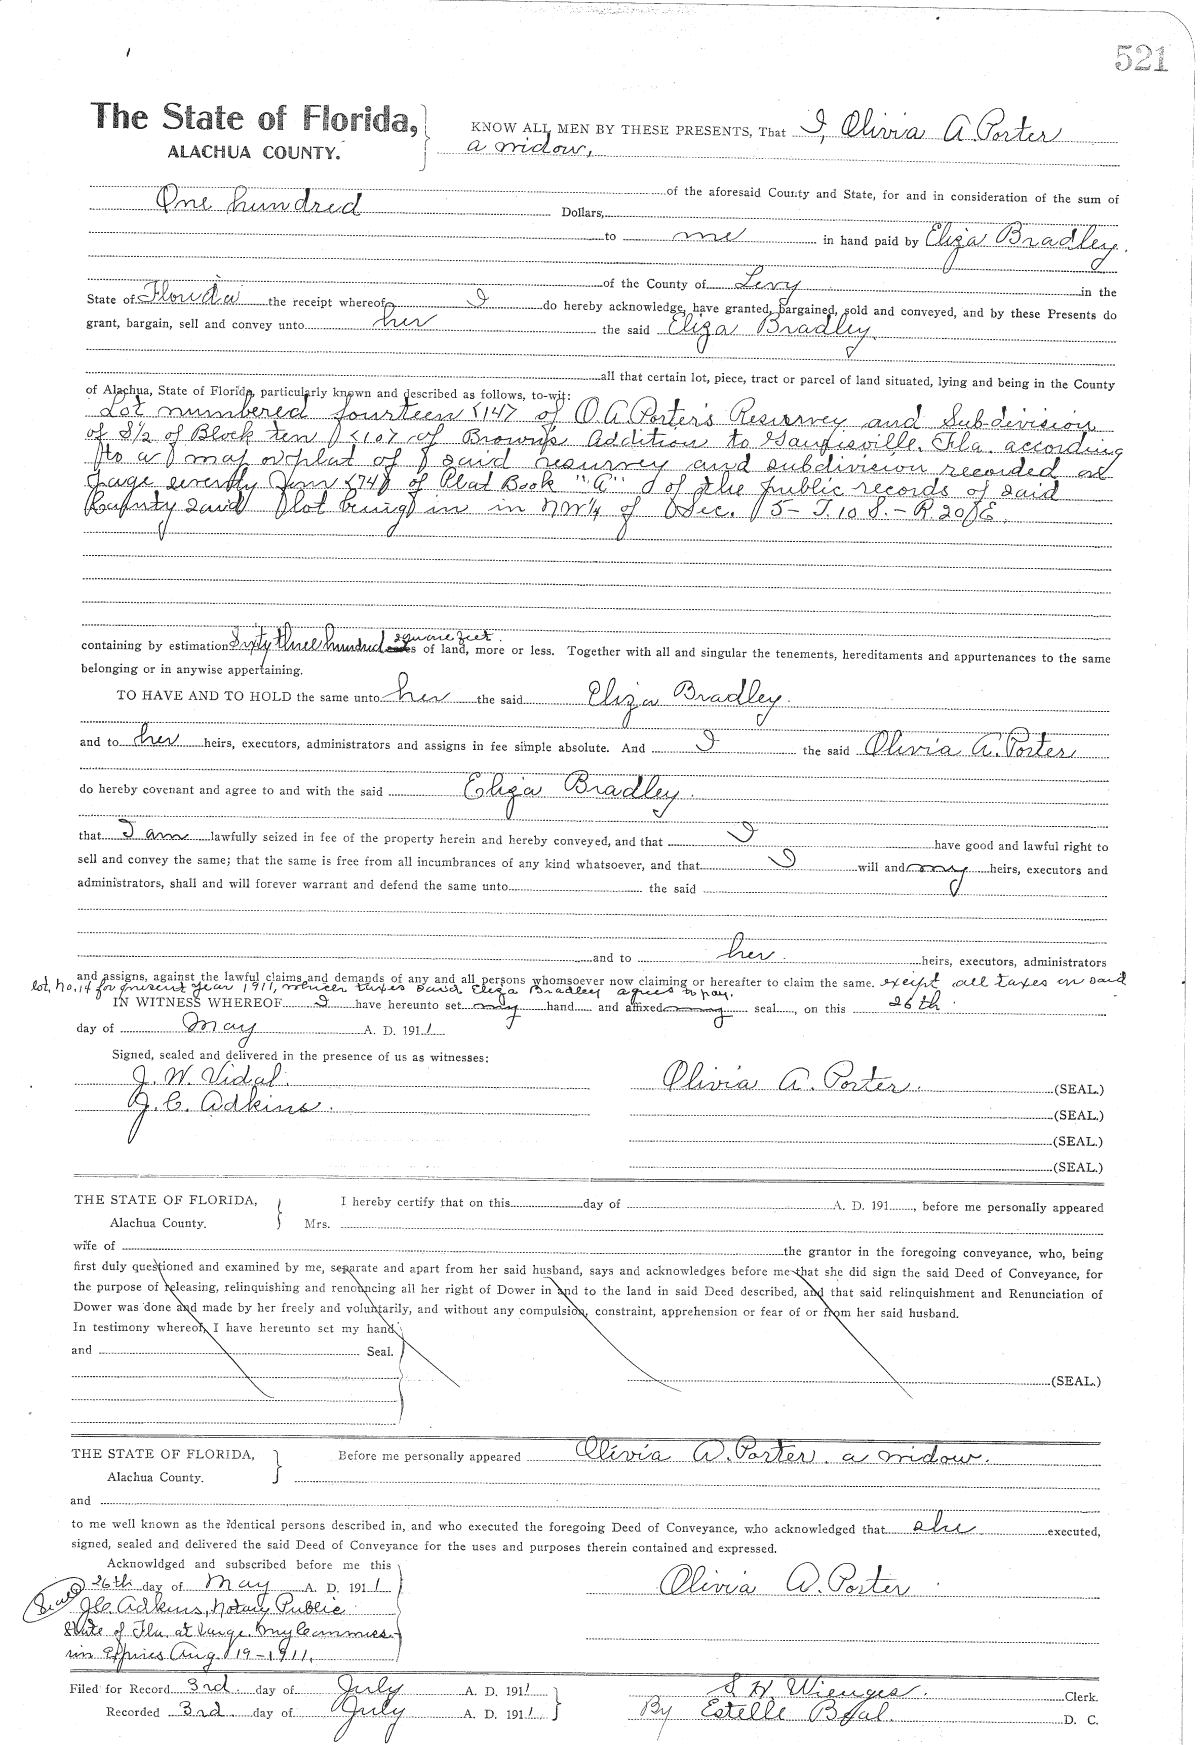 521
The State of Florida,
ALACHUA COUNTY.
KNOW ALL MEN BY THESE PRESENTS, That I, Olivia A. Porter
a widow,
of the aforesaid County and State, for and in consideration of the sum of
One hundred Dollars,
to me in hand paid by Eliza Bradley.
of the County of Levy in the
State of Florida the receipt whereof I do hereby acknowledge, have granted, bargained, sold and conveyed, and by these Presents do
grant, bargain, sell and convey unto her the said Eliza Bradley.
all that certain lot, piece, tract or parcel of land situated, lying and being in the County
of Alachua, State of Florida, particularly known and described as follows, to-wit:
Lot numbered fourteen <14> of O. A. Porter's Resurvey and Subdivision
of S½ of Block ten <10> of Brown's Addition to Gainesville, Fla. according
to a map or plat of said resurvey and subdivision recorded on
page seventy <74> of Plat Book "A" of the public records of said
County said lot being in in NW¼ of Sec. 5 - T. 10 S. - R. 20 E.
containing by estimation Sixty three hundred square feet. of land, more or less. Together with all and singular the tenements, hereditaments and appurtenances to the same
belonging or in anywise appertaining.
TO HAVE AND TO HOLD the same unto her the said Eliza Bradley.
and to her heirs, executors, administrators and assigns in fee simple absolute. And I the said Olivia A. Porter
do hereby covenant and agree to and with the said Eliza Bradley.
that I am lawfully seized in fee of the property herein and hereby conveyed, and that I have good and lawful right to
sell and convey the same; that the same is free from all incumbrances of any kind whatsoever, and that I will and my heirs, executors and
administrators, shall and will forever warrant and defend the same unto the said
and to her heirs, executors, administrators
and assigns, against the lawful claims and demands of any and all persons whomsoever now claiming or hereafter to claim the same. except all taxes on said
lot, No. 14 for present year 1911, which taxes said Eliza Bradley agrees to pay.
IN WITNESS WHEREOF I have hereunto set my hand and affixed my seal, on this 26th
day of May A. D. 1911
Signed, sealed and delivered in the presence of us as witnesses:
J. W. Vidal.
J. C. Adkins.
Olivia A. Porter. (SEAL.)
(SEAL.)
(SEAL.)
(SEAL.)
THE STATE OF FLORIDA,
Alachua County.
I hereby certify that on this day of A. D. 191 , before me personally appeared
Mrs.
wife of the grantor in the foregoing conveyance, who, being
first duly questioned and examined by me, separate and apart from her said husband, says and acknowledges before me that she did sign the said Deed of Conveyance, for
the purpose of releasing, relinquishing and renouncing all her right of Dower in and to the land in said Deed described, and that said relinquishment and Renunciation of
Dower was done and made by her freely and voluntarily, and without any compulsion, constraint, apprehension or fear of or from her said husband.
In testimony whereof, I have hereunto set my hand
and Seal.
(SEAL.)
THE STATE OF FLORIDA,
Alachua County.
Before me personally appeared Olivia A. Porter. a widow.
and
to me well known as the identical persons described in, and who executed the foregoing Deed of Conveyance, who acknowledged that she executed,
signed, sealed and delivered the said Deed of Conveyance for the uses and purposes therein contained and expressed.
Acknowldged and subscribed before me this
26th day of May A. D. 1911
Seal
J. C. Adkins, Notary Public
State of Fla. at large. My Commiss-
ion Expires Aug. 19 - 1911.
Olivia A. Porter
Filed for Record 3rd day of July A. D. 1911
Recorded 3rd day of July A. D. 1911
S. H. Wienges. Clerk.
By Estelle D. C.